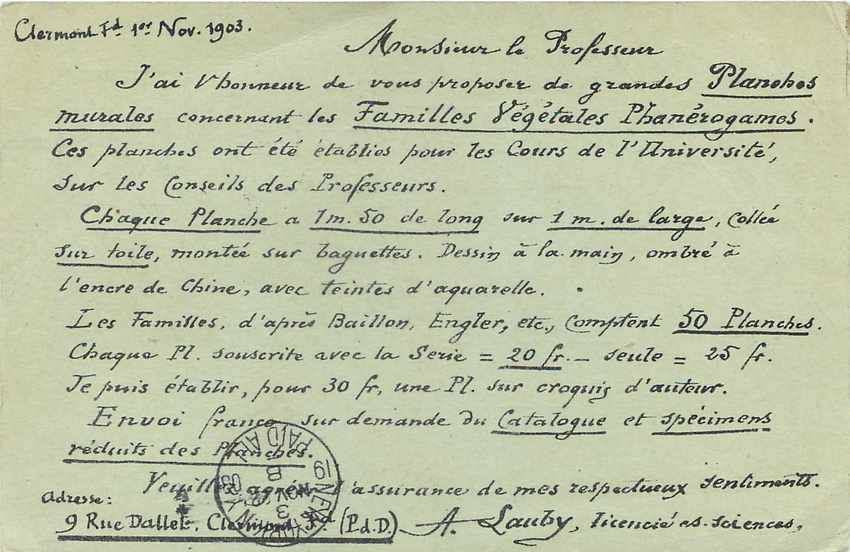 Clermont Fd 1er Nov. 1903.
Monsieur le Professeur
J'ai l'honneur de vous proposer de grandes Planches
murales concernant les Familles Végétales Phanérogames.
Ces planches ont été établies pour les Cours de l'Université,
sur les Conseils des Professeurs.
Chaque Planche a 1m.50 de long sur 1 m. de large, collée
sur toile, montée sur baguettes. Dessin à la main, ombré à
l'encre de Chine, avec teintes d'aquarelle.
Les Familles, d'après Baillon, Engler, etc, comptent 50 Planches.
Chaque Pl. souscrite avec la Serie = 20 fr. — seule = 25 fr.
Je puis établir, pour 30 fr, une Pl. sur croquis d'auteur.
Envoi franco sur demande du Catalogue et spécimens
réduits des Planches.
Veuillez agréer l'assurance de mes respectueux sentiments.
Adresse:
9 Rue Dallet, Clermont Fd (P.d.D.) A. Lauby, licencié es-sciences,
NEW YORK
NOV 3
B
03
19
PAID ALL